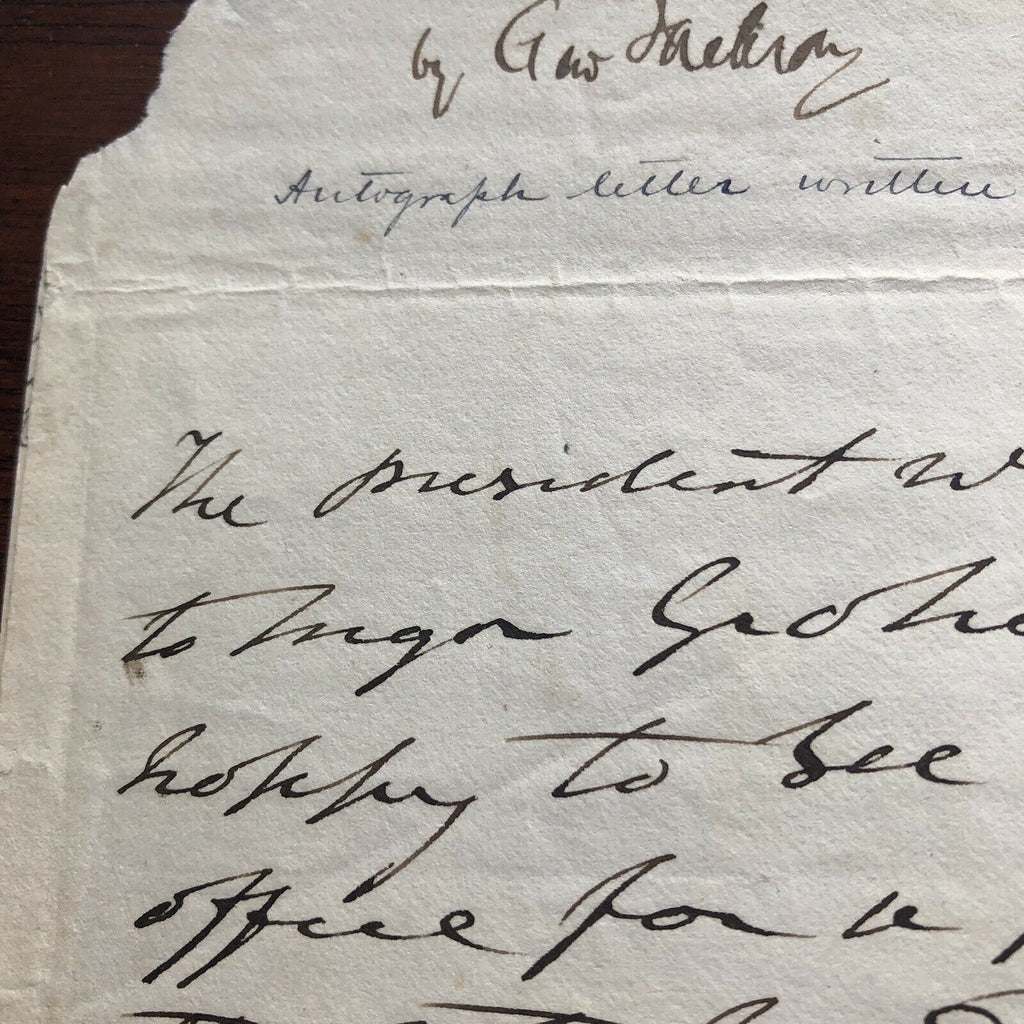 by Gen Jackson
Autograph letter written
The president w
to Major Graha
happy to see
office for a